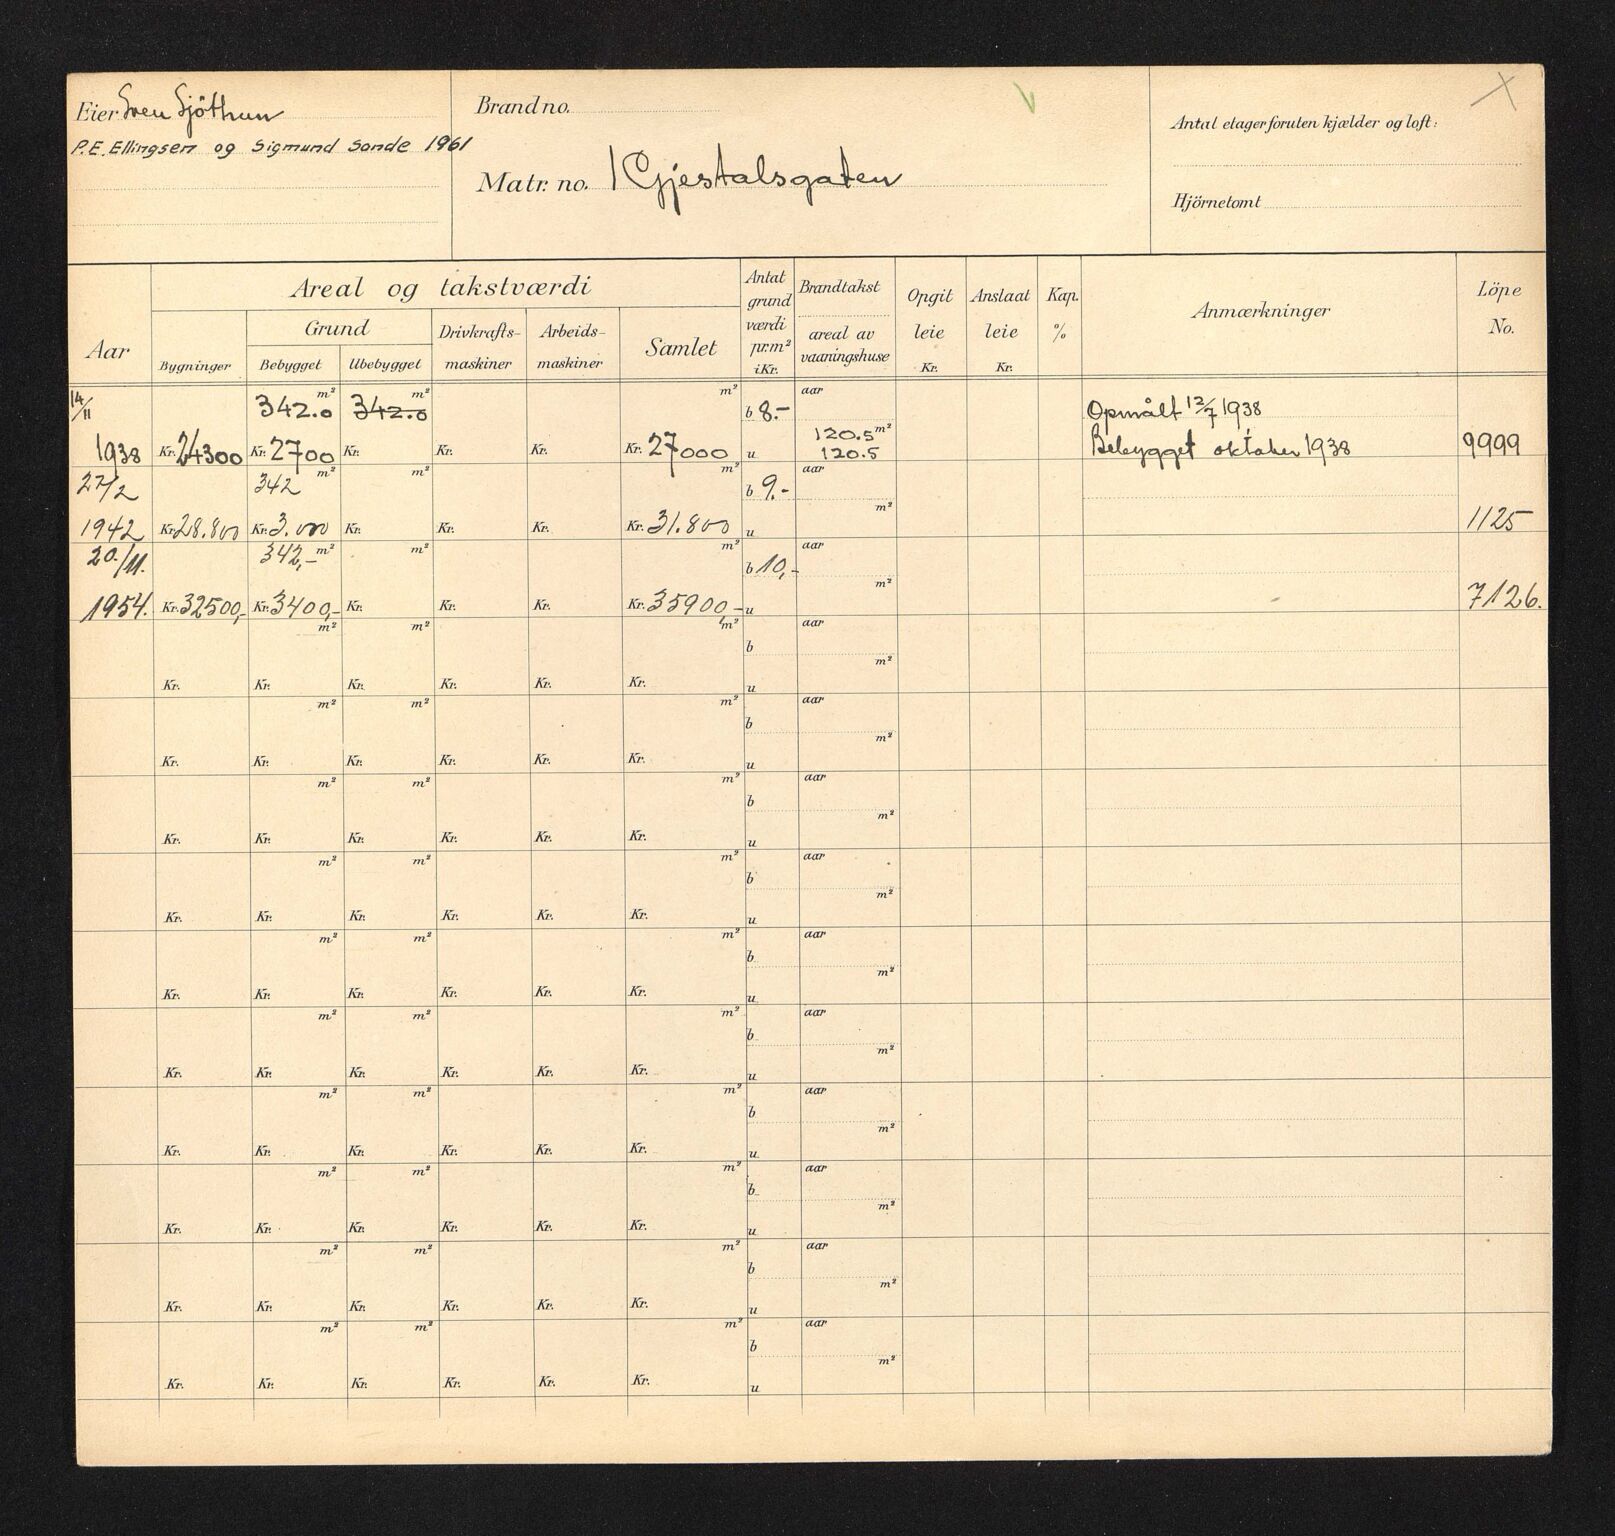 Eier Sven Sjöthun
P.E. Ellingsen og Sigmund Sande 1961
Brand no.
Matr. no. 1 Gjestalsgaten
Antal etager foruten kjælder og loft:
Hjörnetomt
Aar
Areal og takstværdi
Bygninger
Grund
Bebygget Ubebygget
Drivkrafts-
maskiner
Arbeids-
maskiner
Samlet
Antat
grund
værdi
pr.m²
i Kr.
Brandtakst
areal av
vaaningshuse
Opgit
leie
Kr.
Anslaat
leie
Kr.
Kap.
%
Anmærkninger
Löpe
No.
14/11 342.0 m² 342.0 m² m² b 8.- aar Opmålt 12/7 1938
1938 Kr. 24300 Kr. 2700 Kr. Kr. Kr. Kr. 27000 u 120.5 m² 120.5 Bebygget oktober 1938 9999
27/2 342 m² m² m² b 9.- aar
1942 Kr. 28.800 Kr. 3.000 Kr. Kr. Kr. Kr. 31.800 u m² 1125
20./11. 342,- m² m² m² b 10,- aar
1954. Kr. 32500,- Kr. 3400,- Kr. Kr. Kr. Kr. 35900,- u m² 7126.
m² m² m² b aar
Kr. Kr. Kr. Kr. Kr. Kr. u m²
m² m² m² b aar
Kr. Kr. Kr. Kr. Kr. Kr. u m²
m² m² m² b aar
Kr. Kr. Kr. Kr. Kr. Kr. u m²
m² m² m² b aar
Kr. Kr. Kr. Kr. Kr. Kr. u m²
m² m² m² b aar
Kr. Kr. Kr. Kr. Kr. Kr. u m²
m² m² m² b aar
Kr. Kr. Kr. Kr. Kr. Kr. u m²
m² m² m² b aar
Kr. Kr. Kr. Kr. Kr. Kr. u m²
m² m² m² b aar
Kr. Kr. Kr. Kr. Kr. Kr. u m²
m² m² m² b aar
Kr. Kr. Kr. Kr. Kr. Kr. u m²
m² m² m² b aar
Kr. Kr. Kr. Kr. Kr. Kr. u m²